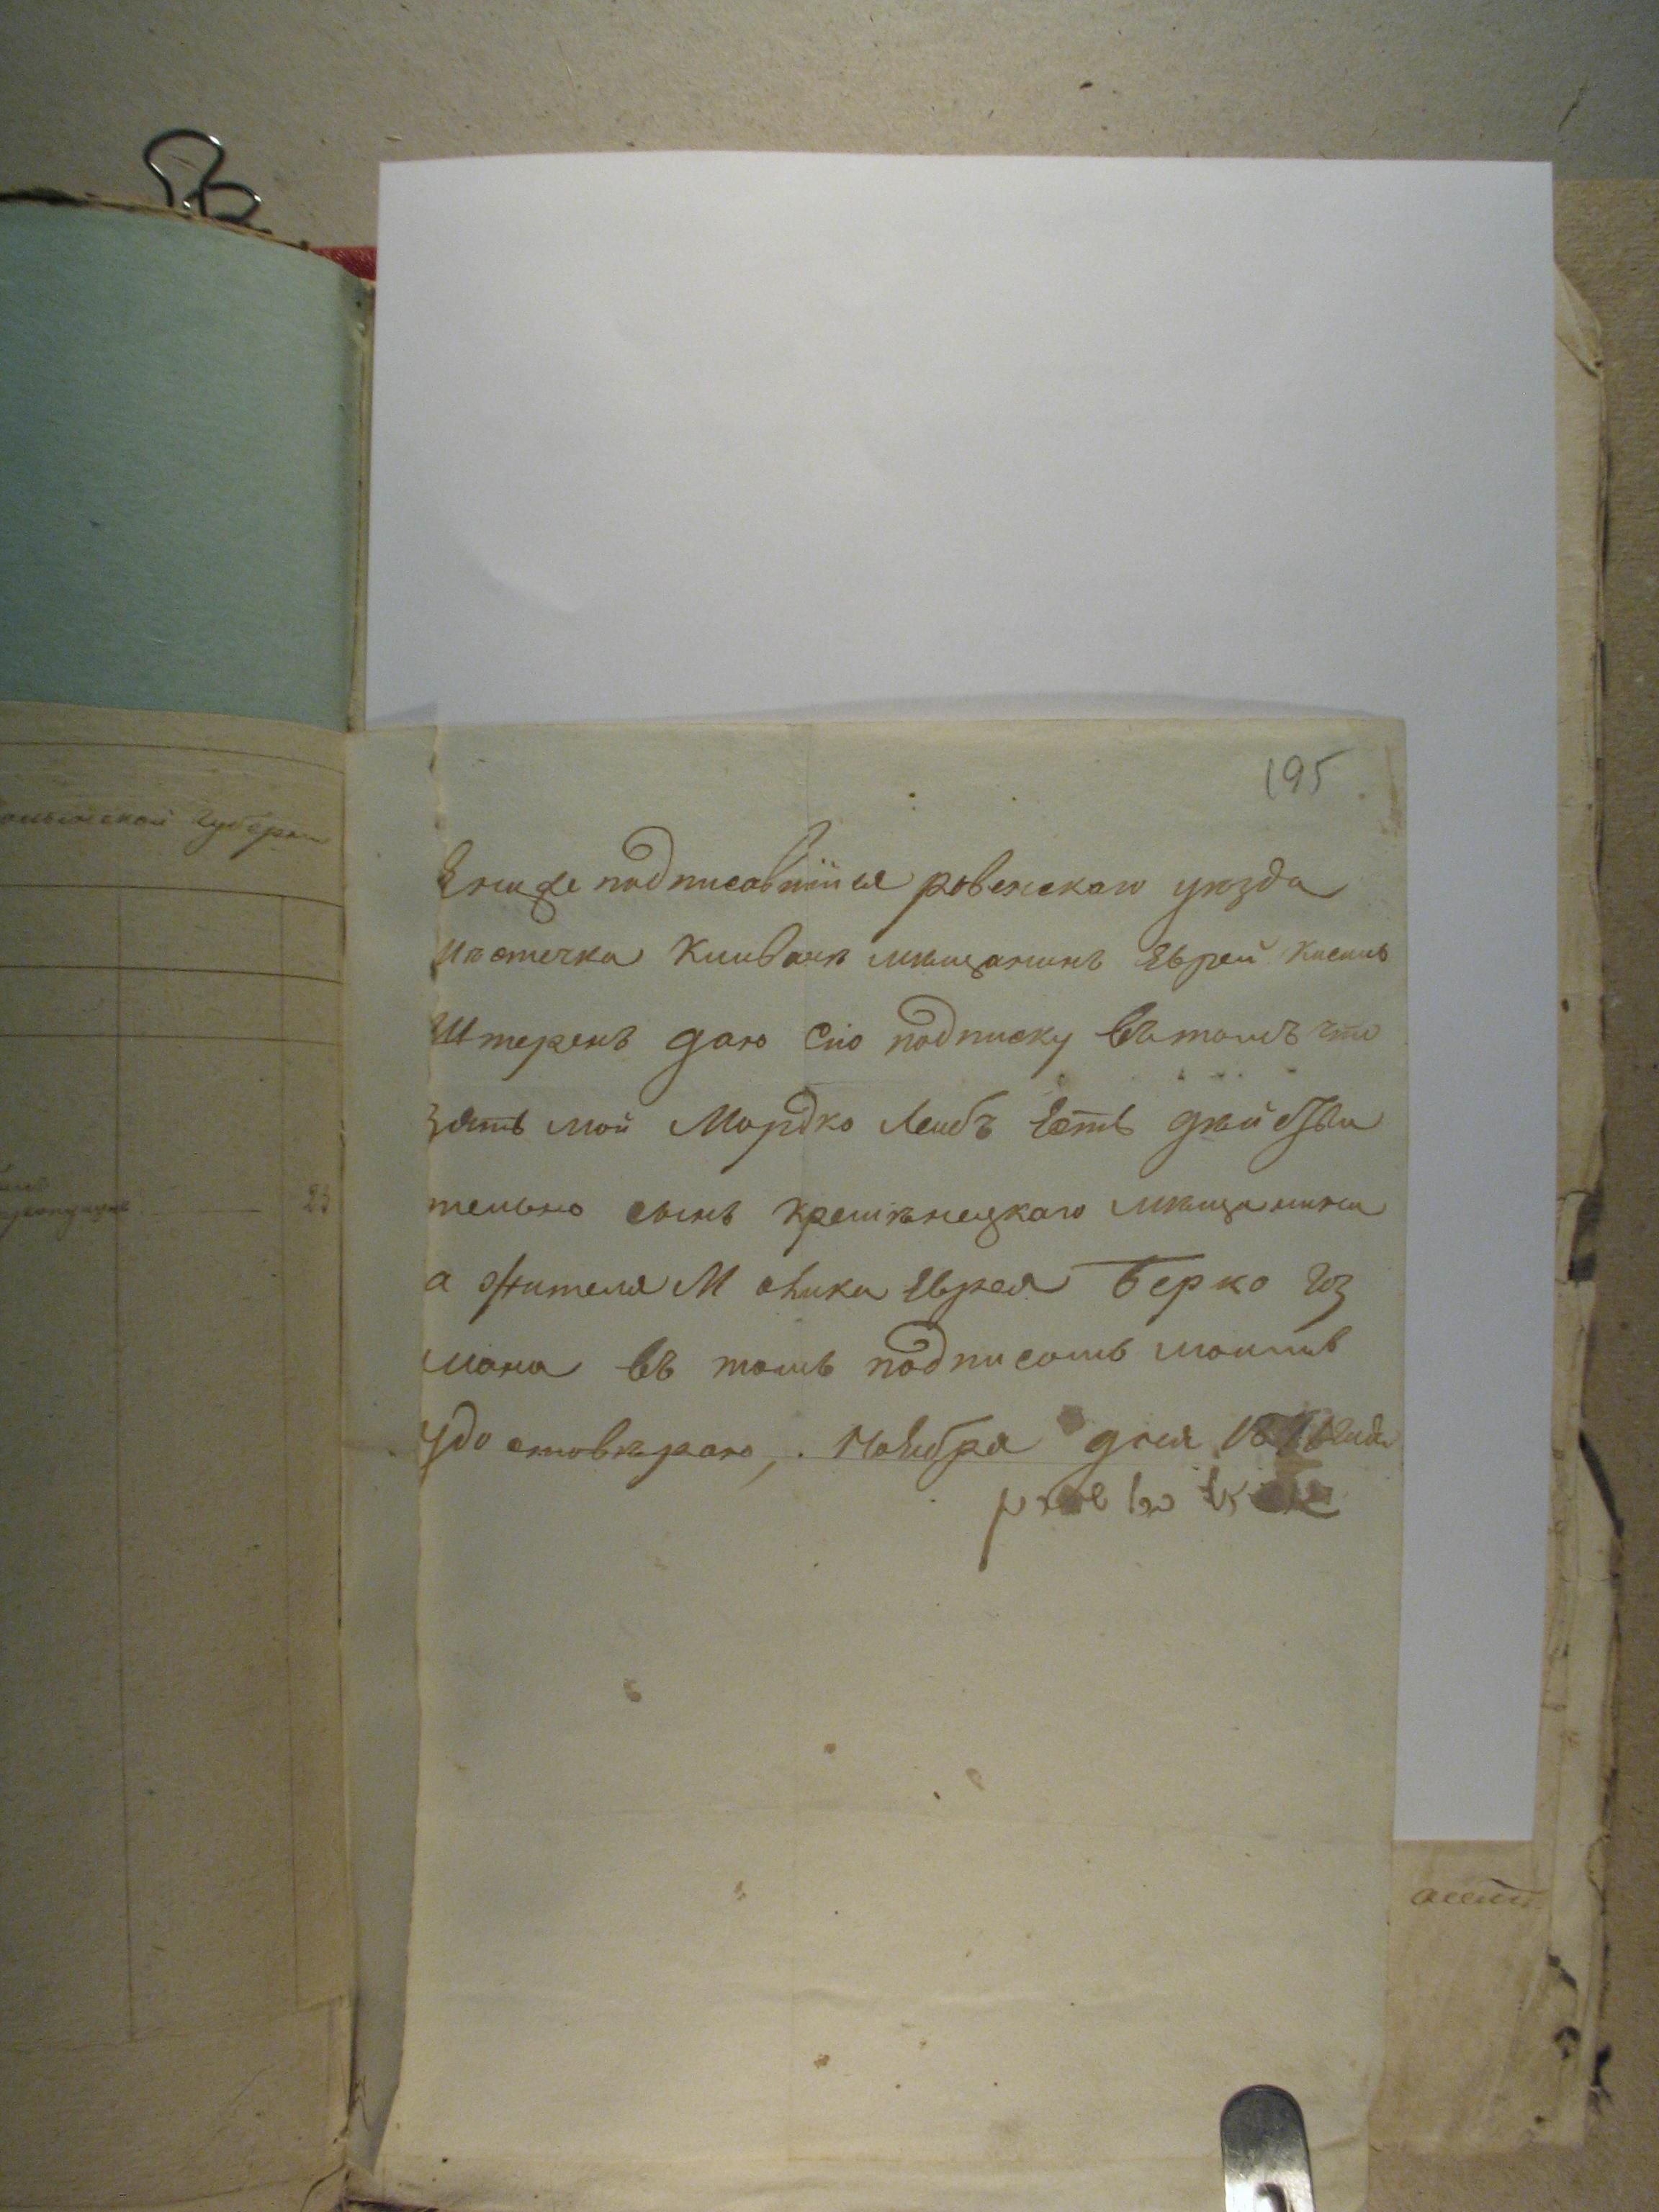 омынской Губерни
23
195
Я ниже подписавшійся ровенскаго уѣзда
мѣстечка Кливань мѣщанинъ Еврей Кисель
Штеренъ даю сію подписку въ томъ что
зять мой Мордко Лейбъ Есть дѣйстви
тельно сынъ кремѣнецкаго мѣщанина
а жителя М оѣика Еврея Берко Гоз
мана въ томъ подписомъ моимъ
удостовѣраю, Ноября дня года
асент